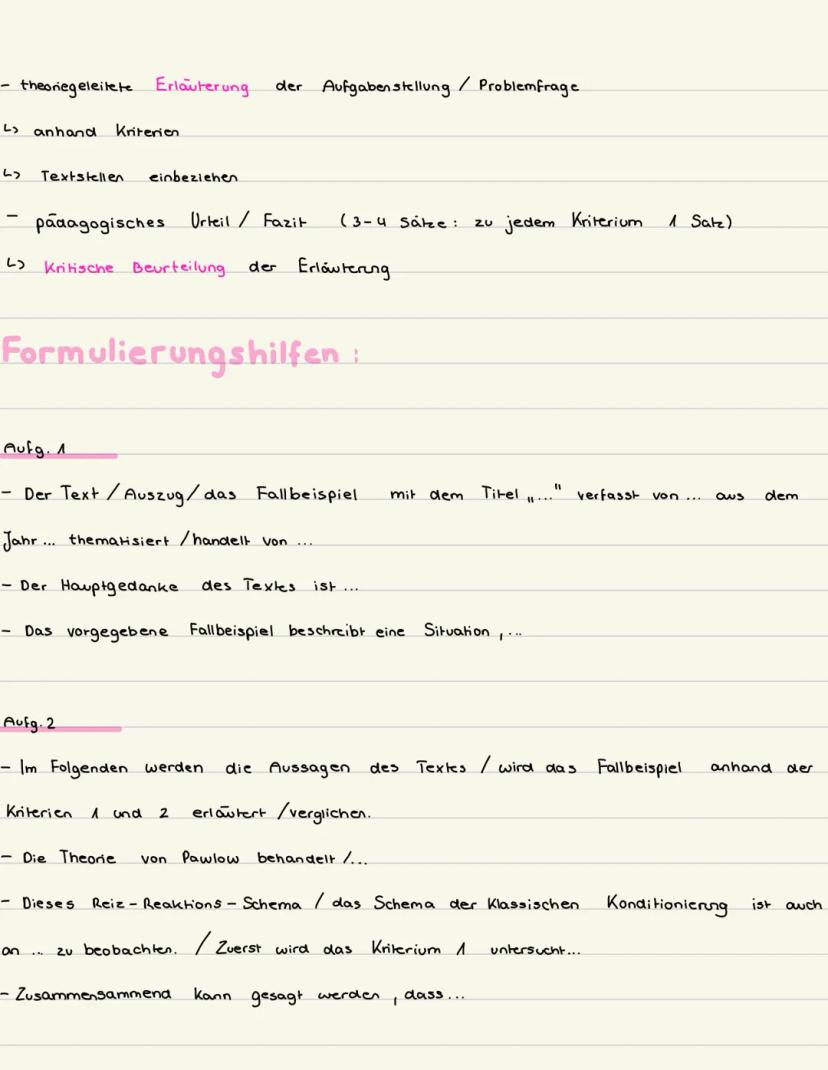 - theoriegeleitete Erläuterung der Aufgabenstellung / Problemfrage
↳ anhand Kriterien
↳ Textstellen einbeziehen
- pädagogisches Urteil / Fazit (3-4 Sätze: zu jedem Kriterium 1 Satz)
↳ Kritische Beurteilung der Erläuterung
Formulierungshilfen:
Aufg. 1
- Der Text / Auszug / das Fallbeispiel mit dem Titel „..." verfasst von ... aus dem
Jahr ... thematisiert / handelt von ...
- Der Hauptgedanke des Textes ist ...
- Das vorgegebene Fallbeispiel beschreibt eine Situation, ...
Aufg. 2
- Im Folgenden werden die Aussagen des Textes / wird das Fallbeispiel anhand der
Kriterien 1 und 2 erläutert / verglichen.
- Die Theorie von Pawlow behandelt /...
- Dieses Reiz-Reaktions-Schema / das Schema der Klassischen Konditionierung ist auch
an ... zu beobachten. / Zuerst wird das Kriterium 1 untersucht...
- Zusammensammend kann gesagt werden, dass...